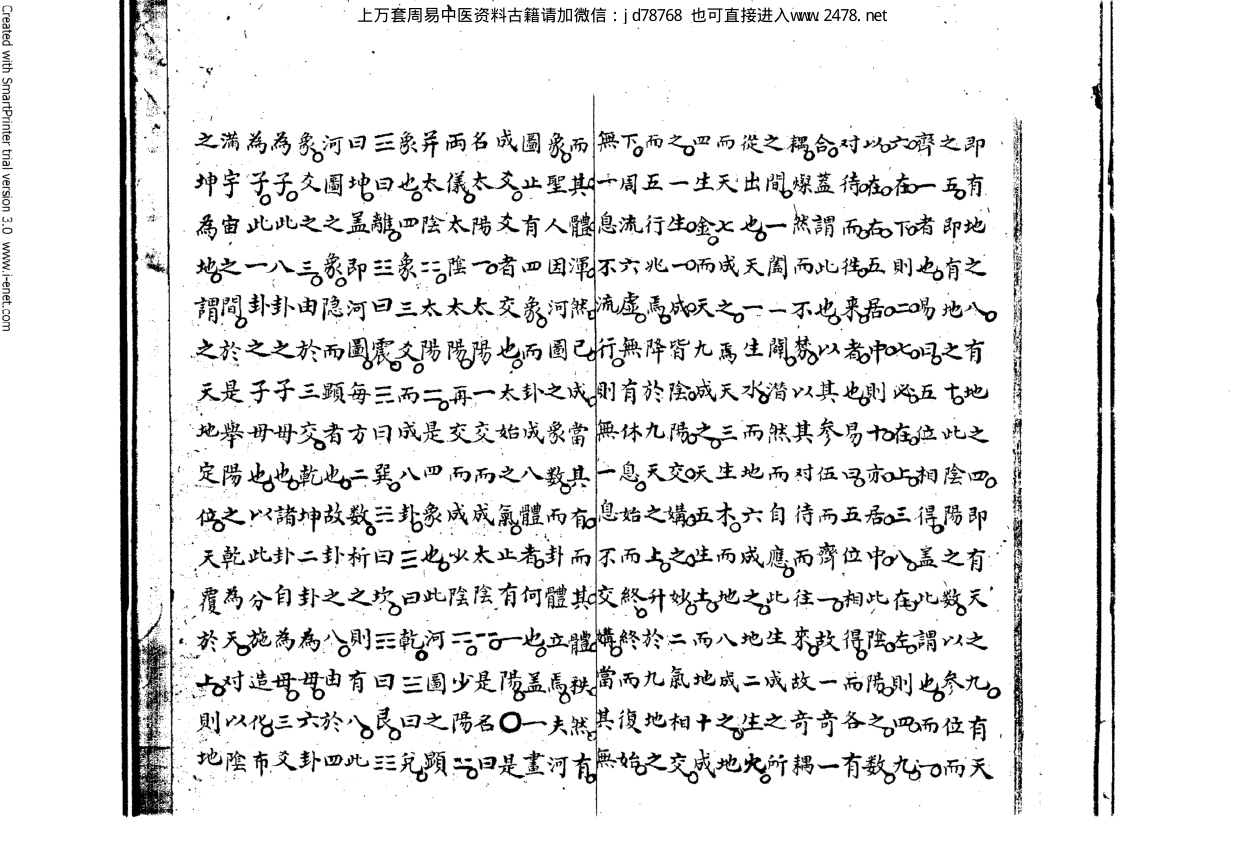 上万套周易中医资料古籍请加微信：jd78768 也可直接进入www.2478.net
即有地之八有地之四即有天之九有天
之五即有地之十此陰陽之數以參位而
齊一者也易曰五位相得蓋此謂也而一
六在下則二七必在上三八在左則四九
以在右五居中則十亦居中此陰陽之数
对待而徃来者也易曰五位相得而各有
合蓋謂此也以其參伍而齊一故一奇一
耦燦然而不棼以其对待而往來故奇耦
之間一闔一闢潜然而自應此生成之所
從出也天一生水而地六成之地二生火
而天七成之焉天三生木而地八成之地
四生金而天九成之天五生土而地十成
之一生一成皆陰陽交媾之妙二氣相交
而五行兆焉降於九天之上升於九地之
下周流六虚無有休息始而終終而復始
無一息不流行則無一息不交媾當其無
而其體渾然已成當其有而其體秩然有
象聖人因河圖之象數而卦體立焉夫河
圖止有四象而卦成八體者何也蓋一畫
成爻爻者交也太始之氣止有一陽〇是
名太陽一太陽一交而成太陰⚋是名曰
両儀太陰太陽再交而成少陰⚍少陽⚎
并太陰⚏太陽⚌是四象也此河圖之顕
象也四象三爻而成八卦☰曰乾☱曰兌
☲曰離☳曰震☴曰巽☵曰坎☶曰艮☷
曰坤蓋即河圖每方二数析之則有八此
河圖之象隐而顕者也故卦之八由於四
象爻之三由於三交乾坤二卦為母六卦
為子此八卦之子母也諸卦自為母三爻
為子此一卦之子母也以此分施造化布
滿宇宙之間於是舉陽之乾為天对以陰
之坤為地謂之天地定位天覆於上則地
Created with SmartPrinter trial version 3.0 www.i-enet.com